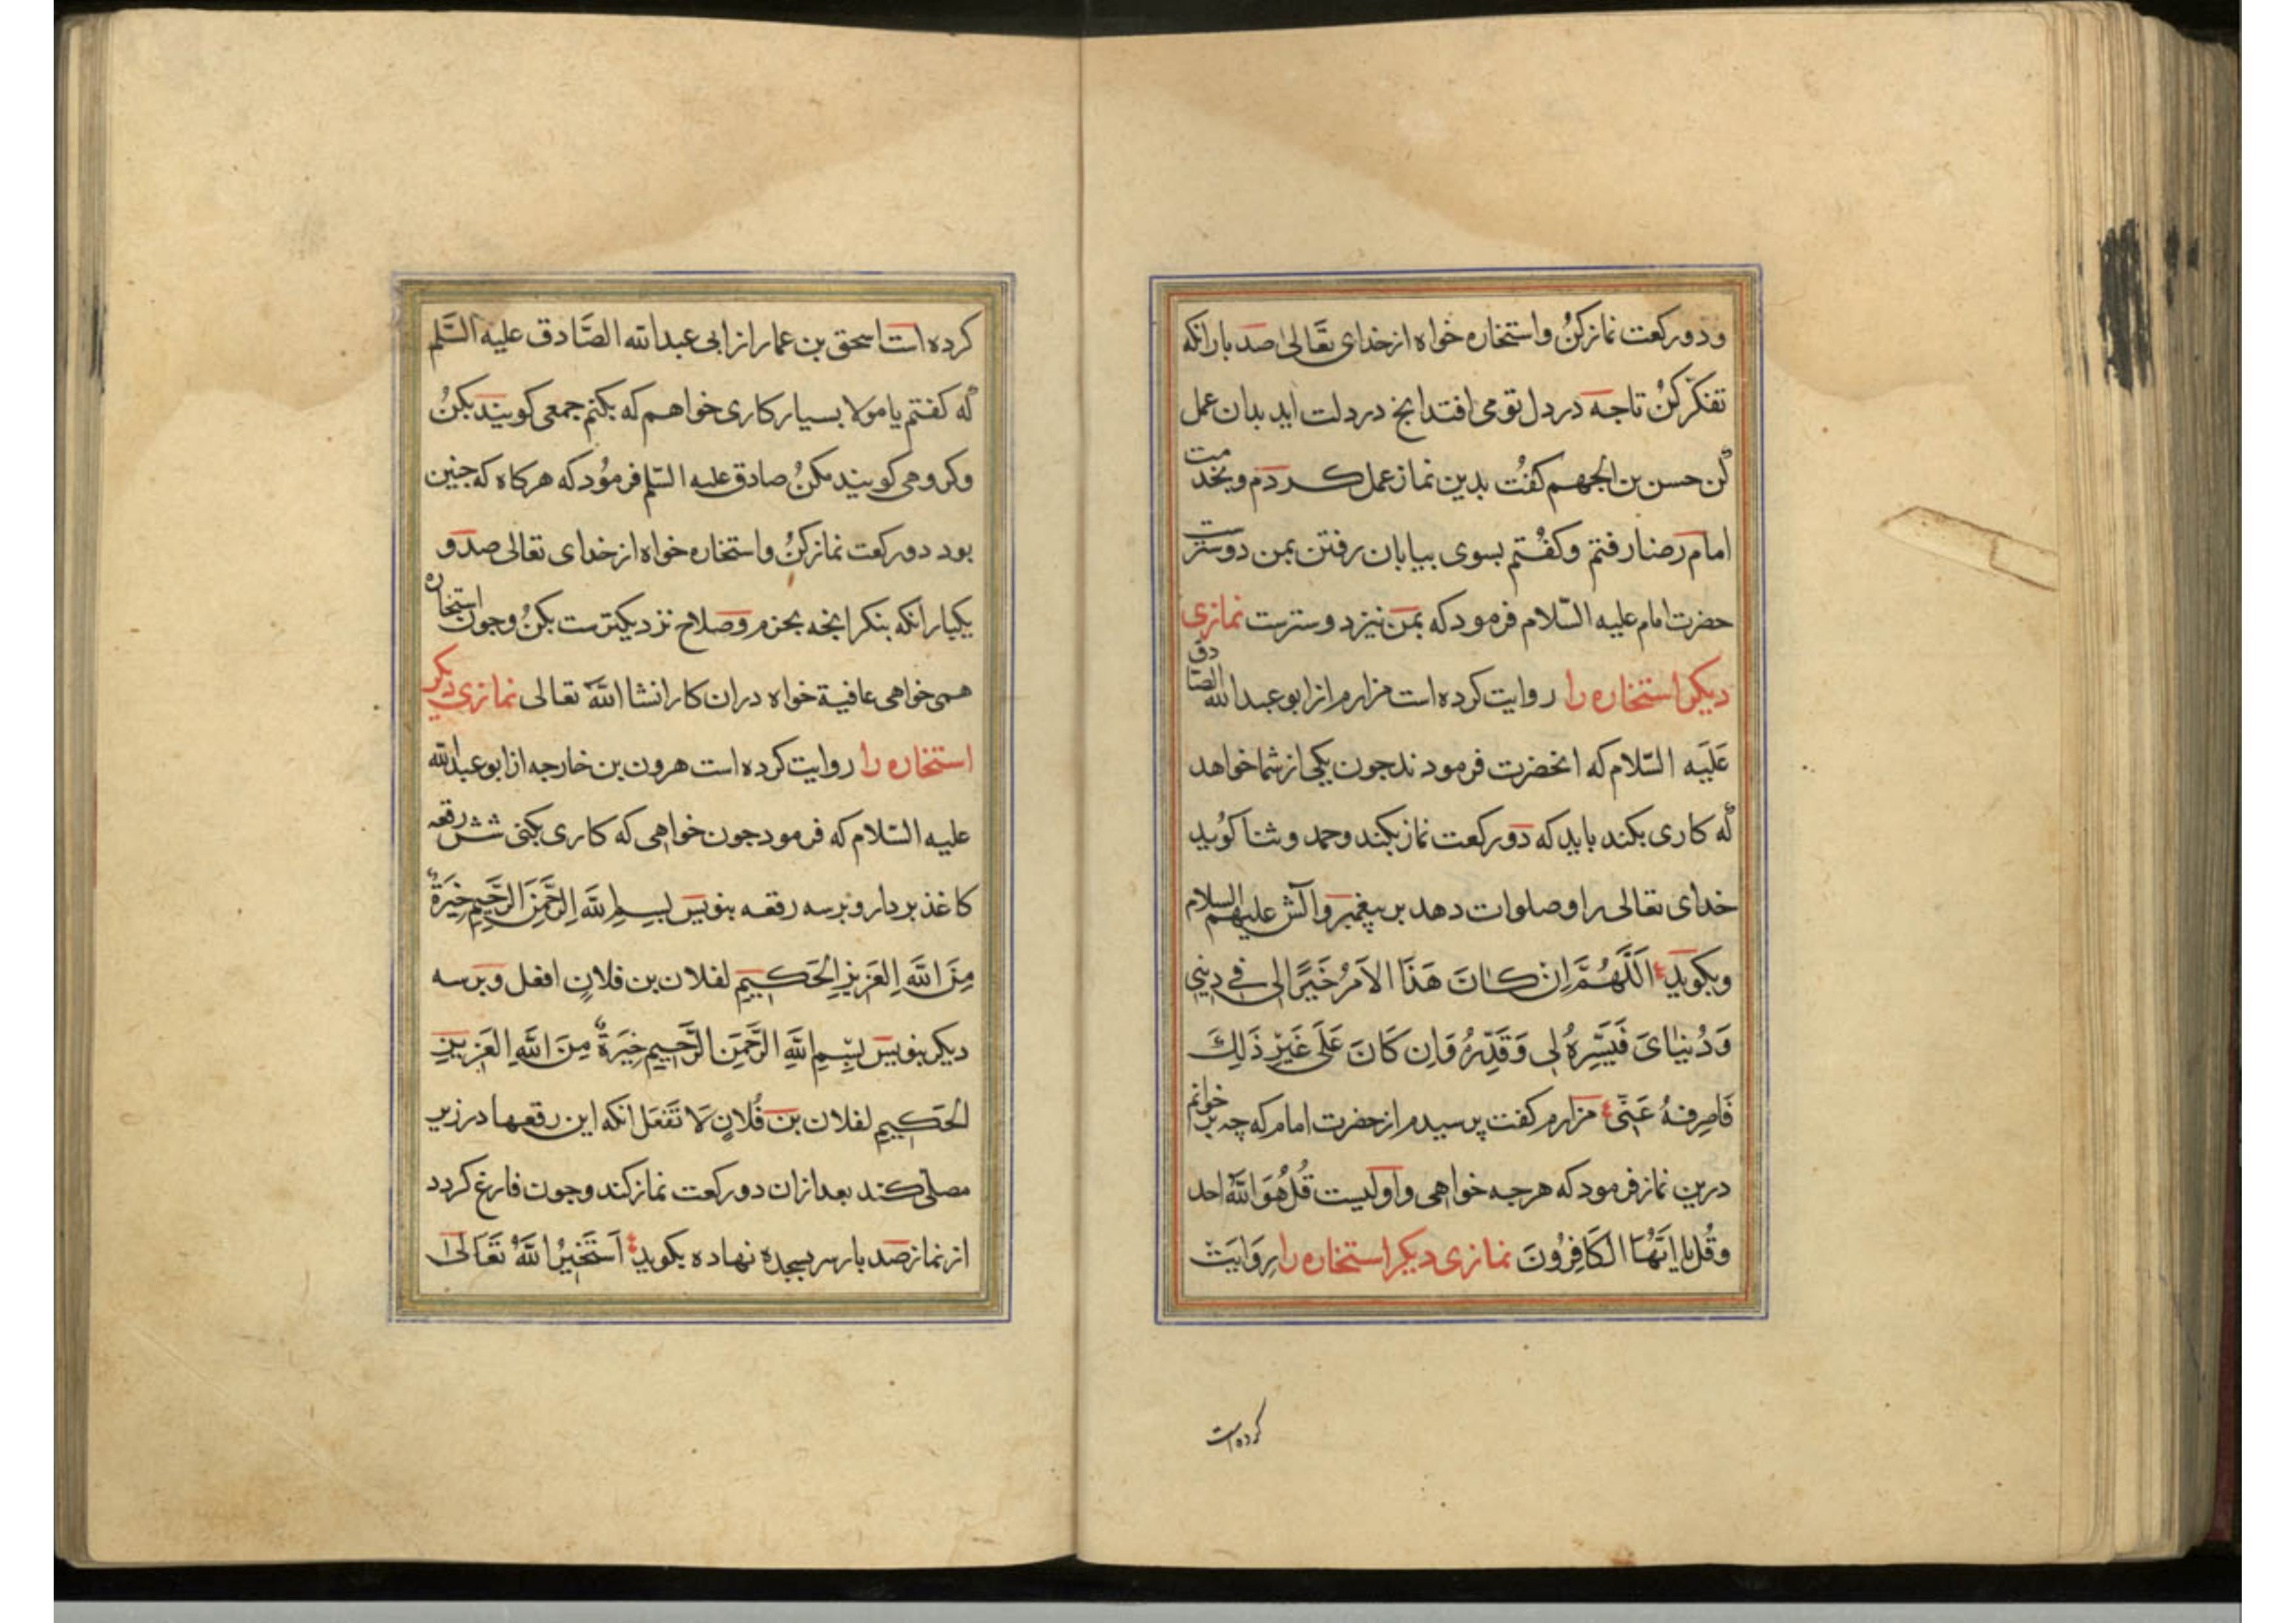 ودو ركعت نماز كن واستخاره خواه از خداى تعالى صد بار انكه
تفكر كن تا جه در دل تو مى افتد انج در دلت ايد بدان عمل
كن حسن بن الجهم كفت بدين نماز عمل كردم وبخدمت
امام رضا رفتم وكفتم بسوى بيابان رفتن بمن دوسترست
حضرت امام عليه السّلام فرمود كه بمن نيز دوسترست نمازى
ديكر استخاره را روايت كرده است مرازم از ابو عبد الله الصّادق
عَلَيه السّلام كه انحضرت فرمودند جون يكى از شما خواهد
كه كارى بكند بايد كه دو ركعت نماز بكند وحمد وثنا كويد
خداى تعالى را وصلوات دهد بر پيغمبر وآلش عليهم السلام
وبكويد اَللَّهُمَّ اِن كانَ هَذَا الاَمرُ خَيرًا لى فى دِينى
وَدُنيَاىَ فَيَسِّرهُ لِى وَقَدِّرهُ وَاِن كَانَ عَلَى غَيرِ ذَلِكَ
فَاصرِفهُ عَنِّى مرازم كفت پرسيدم از حضرت امام كه چه برخوانم
درين نماز فرمود كه هرجه خواهى واوليست قُل هُوَ اللهُ احد
وقُل يا ايَّهَا الكَافِرُونَ نمازى ديكر استخاره را رِوَايَت
كرده است
كرده است اسحق بن عمار از ابى عبد الله الصَّادق عليه السَّلم
كه كفتم يا مولا بسيار كارى خواهم كه بكنم جمعى كويند بكن
وكروهى كويند مكن صادق عليه السّلم فرمُود كه هركاه كه جنين
بود دو ركعت نماز كن واستخاره خواه از خداى تعالى صد و
يكبار انكه بنكر انجه بحزم وصلاح نزديكترست بكن وجون استخاره
همى خواهى عافية خواه دران كار انشا الله تعالى نمازى ديكر
استخاره را روايت كرده است هرون بن خارجه از ابو عبد الله
عليه السّلام كه فرمود جون خواهى كه كارى بكنى شش رقعه
كاغذ بردار وبر سه رقعه بنويس بِسمِ اللهِ الرَّحمَنِ الرَّحِيمِ خِيَرَةٌ
مِنَ اللهِ العَزِيزِ الحَكِيمِ لفلان بن فلانٍ افعل وبر سه
ديكر بنويس بِسمِ اللهِ الرَّحمَنِ الرَّحِيمِ خِيَرَةٌ مِنَ اللهِ العَزِيزِ
الحَكِيمِ لفلان بن فُلانٍ لَا تَفعَل انكه اين رقعها در زير
مصلى كند بعد ازان دو ركعت نماز كند وجون فارغ كردد
از نماز صد بار سر بسجده نهاده بكويد اَستَخِيرُ اللهَ تَعَالَى